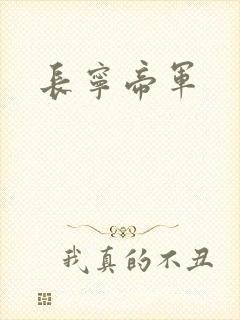 長寧帝軍
我真的不丑